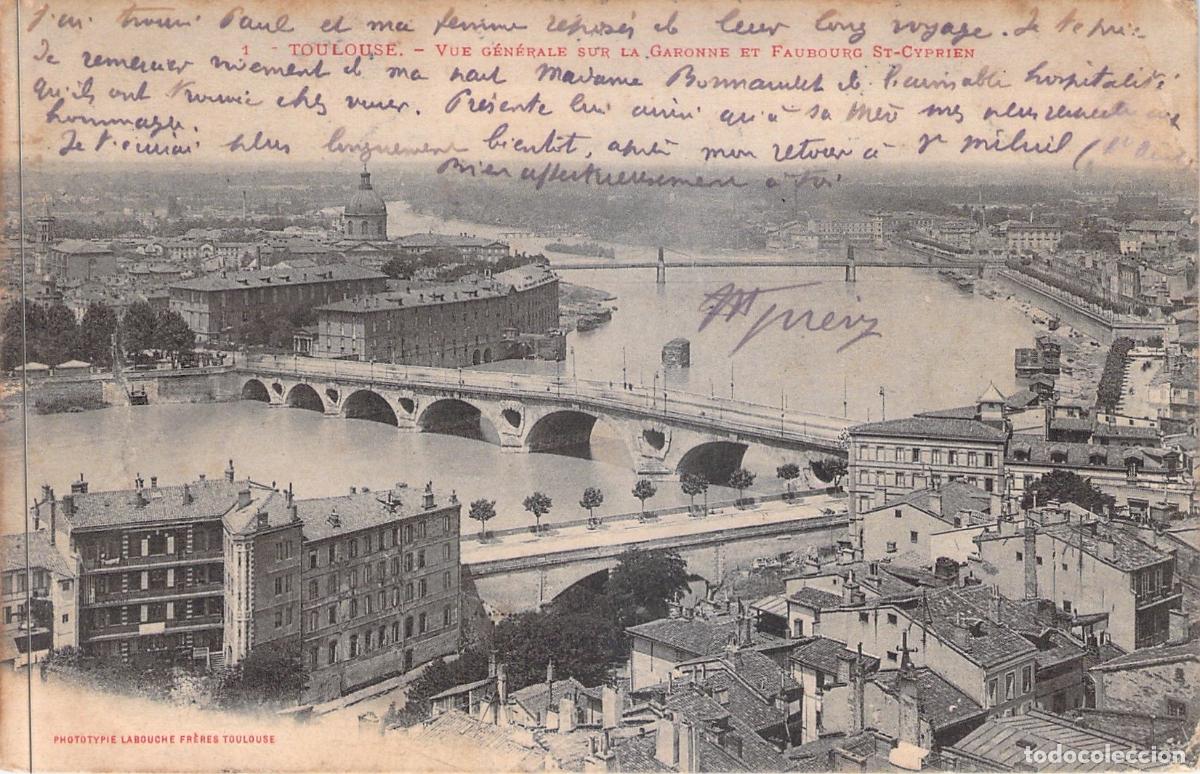 J'ai trouvé Paul et ma femme reposés de leur long voyage. Je te prie
1 - TOULOUSE. - VUE GÉNÉRALE SUR LA GARONNE ET FAUBOURG ST-CYPRIEN
de remercier vivement de ma part Madame de l'aimable hospitalité
qu'ils ont trouvée chez vous. Présente lui ainsi qu'à sa mère mes plus
hommages.
Je t'écrirai plus longuement bientôt, après mon retour à
Bien affectueusement à toi
PHOTOTYPIE LABOUCHE FRÈRES TOULOUSE
todocoleccion